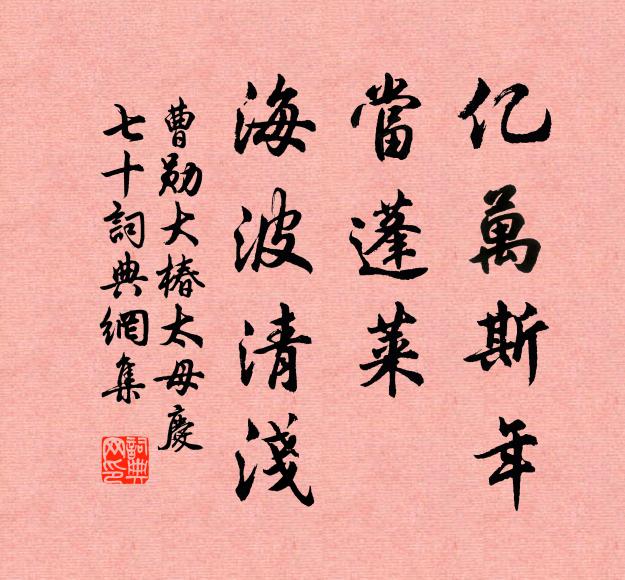 亿萬斯年
當蓬萊
海波清淺
曹勛大椿太母慶
七十詞典網集
詞典
网印